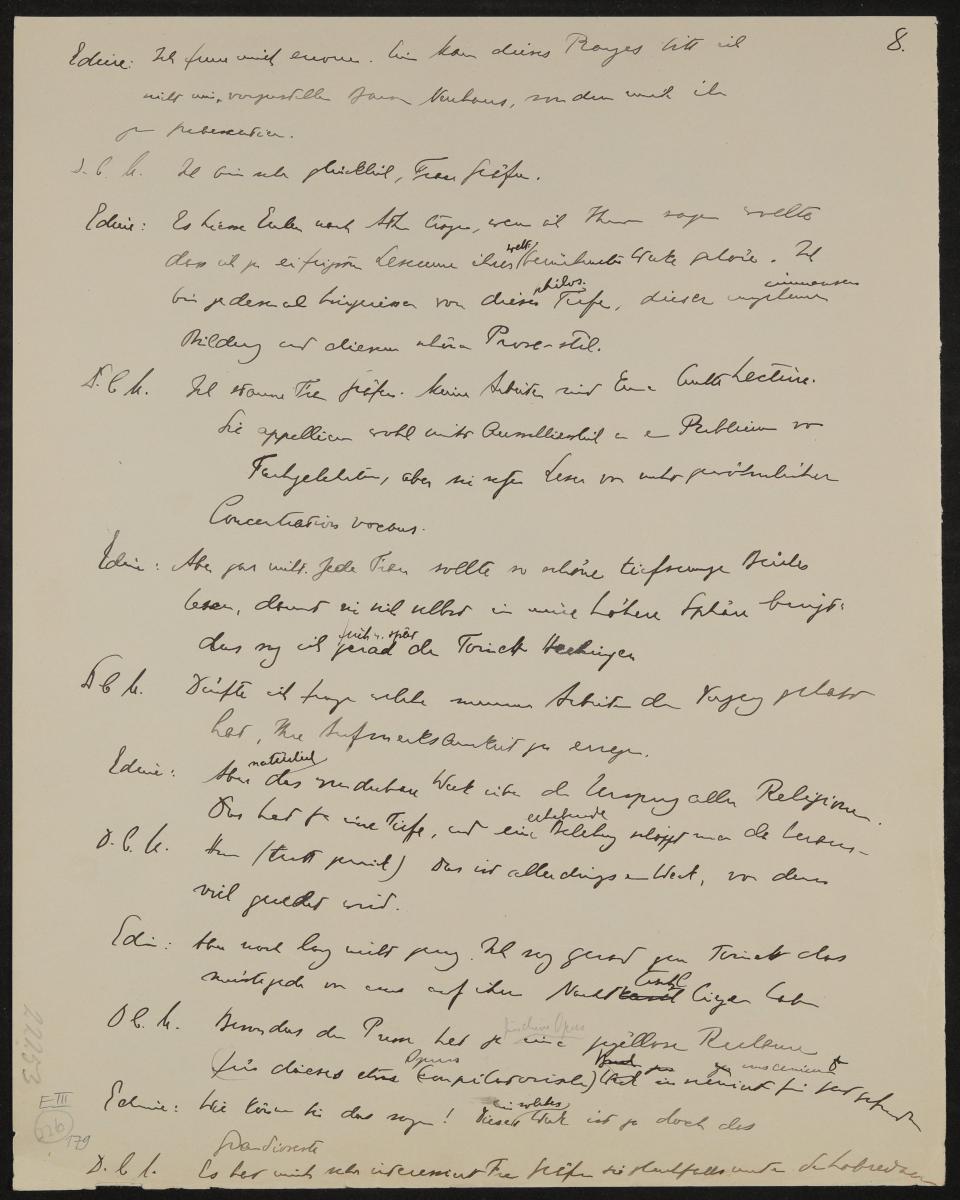 8.
Edine: Ich freue mich enorm. Ein Mann dieses Ranges bitt ich
nicht mir vorzustellen Baron Neuhaus, sondern mich ihm
zu präsentieren.
D. C. M. Ich bin sehr glücklich, Frau Gräfin.
Edine: Es hiesse Eulen nach Athen tragen, wenn ich Ihnen sagen wollte
dass ich zu eifrigsten Leserinnen ihres welt berühmten Werke gehöre. Ich
bin jedesmal hingerissen von dieser philos. Tiefe, dieser immensen
Bildung und diesem schönen Prosa-stil.
D. C. M. Ich staune Frau Gräfin. Meine Arbeiten sind keine leichte Lectüre.
Sie appellieren wohl nicht ausschliesslich an ein Publicum von
Fachgelehrten, aber sie setzen Leser von nicht gewöhnlicher
Concentration voraus.
Edine: Aber gar nicht. Jede Frau sollte so schöne tiefsinnige Bücher
lesen, damit sie sich selbst in eine höhere Sphäre bringt.
das sag ich früh u. spät der Toinette Hechingen
D. C. M. Dürfte ich fragen welche meiner Arbeiten den Vorzug gehabt
hat, Ihre Aufmerksamkeit zu erregen.
Edine: Aber natürlich das wunderbare Werk über den Ursprung aller Religionen.
Das hat ja eine Tiefe, und eine erhebende Belehrung schöpft man da heraus–
D. C. M. Hm (tritt zurück) Das ist allerdings ein Werk, von dem
viel geredet wird.
Edin: Aber noch lang nicht genug. Ich sag gerad zur Toinette das
müsste jede von uns auf ihrem Nachtkastl liegen haben
D C. M. Besonders die Presse hat ja eine zügellose Reclame
für dieses Opus zu inscenieren
Edine: Wie können Sie das sagen! ein solches Werk ist ja doch das
Grandioseste
D. C. M. Es hat mich sehr interessiert Frau Gräfin sie gleichfalls unter den Lobrednern
22253
E III
179